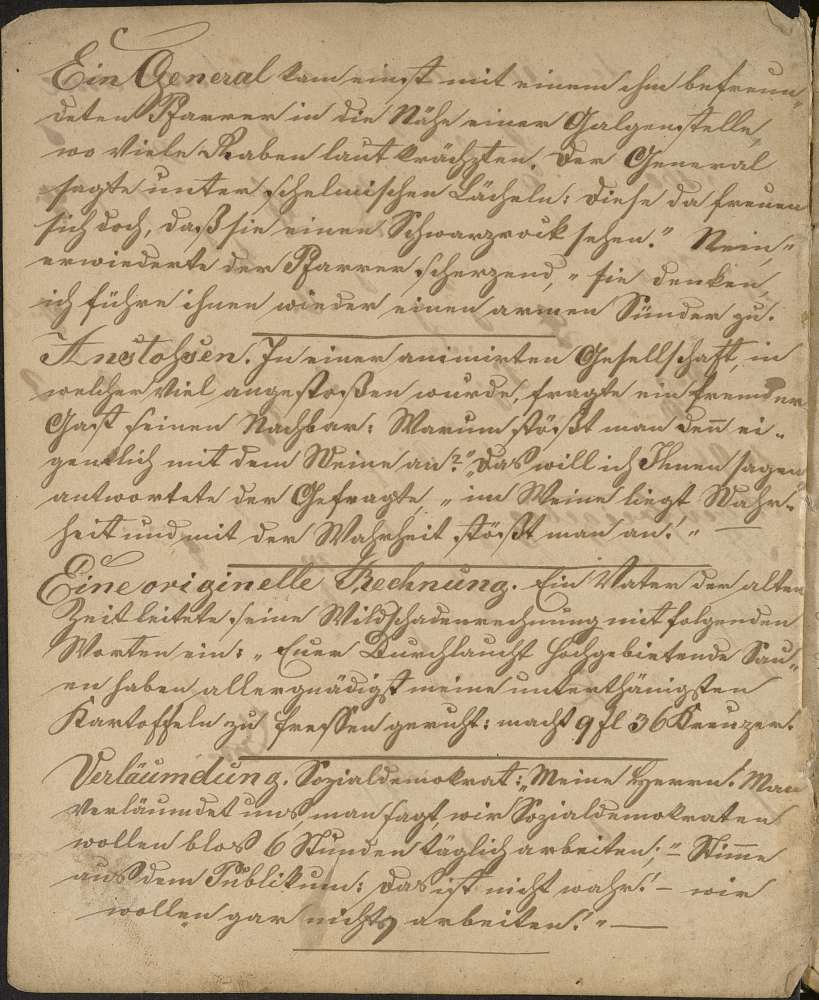 Ein General kam einst mit einem ihm befreun„
deten Pfarrer in die Nähe einer Galgenstelle,
wo viele Raben laut krächzten. Der General
sagte unter schelmischen Lächeln: Diese da freuen
sich doch, daß sie einen Schwarzrock sehen.“ Nein,“
erwiederte der Pfarrer scherzend, „sie denken,
ich führe ihnen wieder einen armen Sünder zu.
Anstohsen. In einer animirten Gesellschaft, in
welcher viel angestoßen wurde, fragte ein fremder
Gast seinen Nachbar: Warum stößt man den̄ ei„
gentlich mit dem Weine an?“ „Das will ich Ihnen sagen“
antwortete der Gefragte, „im Weine liegt Wahr„
heit und mit der Wahrheit stößt man an!“ —
Eine originelle Rechnung. Ein Vater der alten
Zeit leitete seine Wildschadenrechnung mit folgenden
Worten ein: „Euer Durchlaucht hochgebietende Sau„
en haben allergnädigst meine unterthänigsten
Kartoffeln zu fressen geruht: macht 9 fl 36 Kreuzer.
Verläumdung. Sozialdemokrat: „Meine Herrn! Man
verläumdet uns, man sagt, wir Sozialdemokraten
wollen blos 6 Stunden täglich arbeiten;“ – Stim̄e
aus dem Publikum: Das ist nicht wahr! – wir
wollen gar nichts arbeiten!“ —